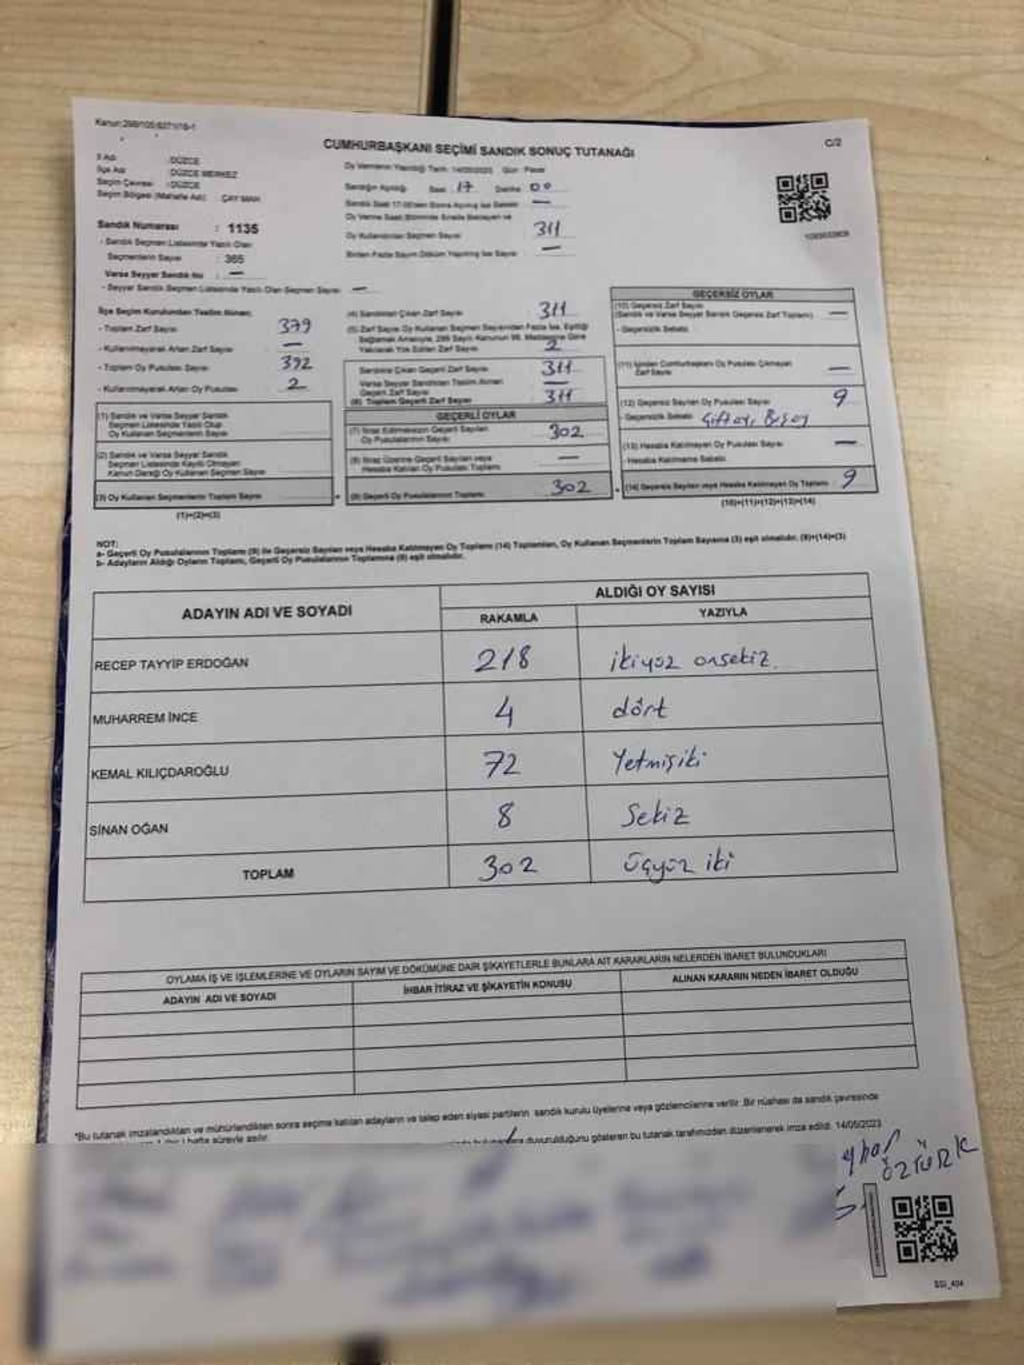 Kanun:298/105;6271/18-1
C/2
CUMHURBAŞKANI SEÇİMİ SANDIK SONUÇ TUTANAĞI
İl Adı : DÜZCE
İlçe Adı : DÜZCE MERKEZ
Seçim Çevresi : DÜZCE
Seçim Bölgesi (Mahalle Adı) : ÇAY MAH.
Sandık Numarası : 1135
- Sandık Seçmen Listesinde Yazılı Olan
Seçmenlerin Sayısı : 365
Varsa Seyyar Sandık No : —
- Seyyar Sandık Seçmen Listesinde Yazılı Olan Seçmen Sayısı : —
Oy Vermenin Yapıldığı Tarih: 14/05/2023 Gün: Pazar
Sandığın Açıldığı Saat 17 Dakika 00
Sandık Saat 17:00'den Sonra Açılmış İse Sebebi —
Oy Verme Saati Bitiminde Sırada Bekleyen ve
Oy Kullandırılan Seçmen Sayısı 311
Birden Fazla Sayım Döküm Yapılmış İse Sayısı —
İlçe Seçim Kurulundan Teslim Alınan;
- Toplam Zarf Sayısı 379
- Kullanılmayarak Artan Zarf Sayısı —
- Toplam Oy Pusulası Sayısı 392
- Kullanılmayarak Artan Oy Pusulası 2
(1) Sandık ve Varsa Seyyar Sandık
Seçmen Listesinde Yazılı Olup
Oy Kullanan Seçmenlerin Sayısı
(2) Sandık ve Varsa Seyyar Sandık
Seçmen Listesinde Kayıtlı Olmayan
Kanun Gereği Oy Kullanan Seçmen Sayısı
(3) Oy Kullanan Seçmenlerin Toplam Sayısı
(1)+(2)=(3)
(4) Sandıktan Çıkan Zarf Sayısı 311
(5) Zarf Sayısı Oy Kullanan Seçmen Sayısından Fazla İse, Eşitliği
Sağlamak Amacıyla, 298 Sayılı Kanunun 98. Maddesine Göre
Yakılarak Yok Edilen Zarf Sayısı 2
Sandıkta Çıkan Geçerli Zarf Sayısı 311
Varsa Seyyar Sandıktan Teslim Alınan
Geçerli Zarf Sayısı —
(6) Toplam Geçerli Zarf Sayısı 311
GEÇERLİ OYLAR
(7) İtiraz Edilmeksizin Geçerli Sayılan
Oy Pusulalarının Sayısı 302
(8) İtiraz Üzerine Geçerli Sayılan veya
Hesaba Katılan Oy Pusulası Toplamı —
(9) Geçerli Oy Pusulalarının Toplamı 302
GEÇERSİZ OYLAR
(10) Geçersiz Zarf Sayısı
(Sandık ve Varsa Seyyar Sandık Geçersiz Zarf Toplamı) —
- Geçersizlik Sebebi
(11) İçinden Cumhurbaşkanı Oy Pusulası Çıkmayan
Zarf Sayısı —
(12) Geçersiz Sayılan Oy Pusulası Sayısı 9
- Geçersizlik Sebebi Çift oy,
(13) Hesaba Katılmayan Oy Pusulası Sayısı —
- Hesaba Katılmama Sebebi
(14) Geçersiz Sayılan veya Hesaba Katılmayan Oy Toplamı 9
(10)+(11)+(12)+(13)=(14)
NOT:
a- Geçerli Oy Pusulalarının Toplamı (9) ile Geçersiz Sayılan veya Hesaba Katılmayan Oy Toplamı (14) Toplamları, Oy Kullanan Seçmenlerin Toplam Sayısına (3) eşit olmalıdır. (9)+(14)=(3)
b- Adayların Aldığı Oyların Toplamı, Geçerli Oy Pusulalarının Toplamına (9) eşit olmalıdır.
ADAYIN ADI VE SOYADI
ALDIĞI OY SAYISI
RAKAMLA YAZIYLA
RECEP TAYYİP ERDOĞAN 218 ikiyüz onsekiz
MUHARREM İNCE 4 dört
KEMAL KILIÇDAROĞLU 72 Yetmişiki
SİNAN OĞAN 8 Sekiz
TOPLAM 302 üçyüz iki
OYLAMA İŞ VE İŞLEMLERİNE VE OYLARIN SAYIM VE DÖKÜMÜNE DAİR ŞİKAYETLERLE BUNLARA AİT KARARLARIN NELERDEN İBARET BULUNDUKLARI
ADAYIN ADI VE SOYADI İHBAR İTİRAZ VE ŞİKAYETİN KONUSU ALINAN KARARIN NEDEN İBARET OLDUĞU
*Bu tutanak imzalandıktan ve mühürlendikten sonra seçime katılan adayların ve talep eden siyasi partilerin sandık kurulu üyelerine veya gözlemcilerine verilir. Bir nüshası da sandık çevresinde
hafta süreyle asılır.
duyurulduğunu gösteren bu tutanak tarafımızdan düzenlenerek imza edildi. 14/05/2023
ÖZTÜRK
SSI_404